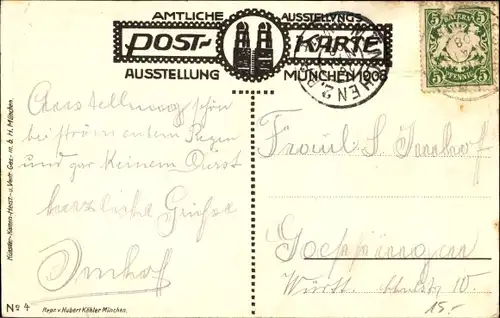 AMTLICHE AUSSTELLUNGS
POST- KARTE
AUSSTELLUNG MÜNCHEN 1908
MÜNCHEN 2.
BAYERN
5 5
PFENNIG
Ausstellung schön
bei strömentem Regen
und gar keinem Durst
herzliche Grüße
Imhof
Fräul S. Imhof
Goeppingen
Württ. 10.
15.-
Künstler-Karten-Herst.- u. Vertr. Ges.- m. b. H. München.
No 4
Repr. v. Hubert Köhler München.